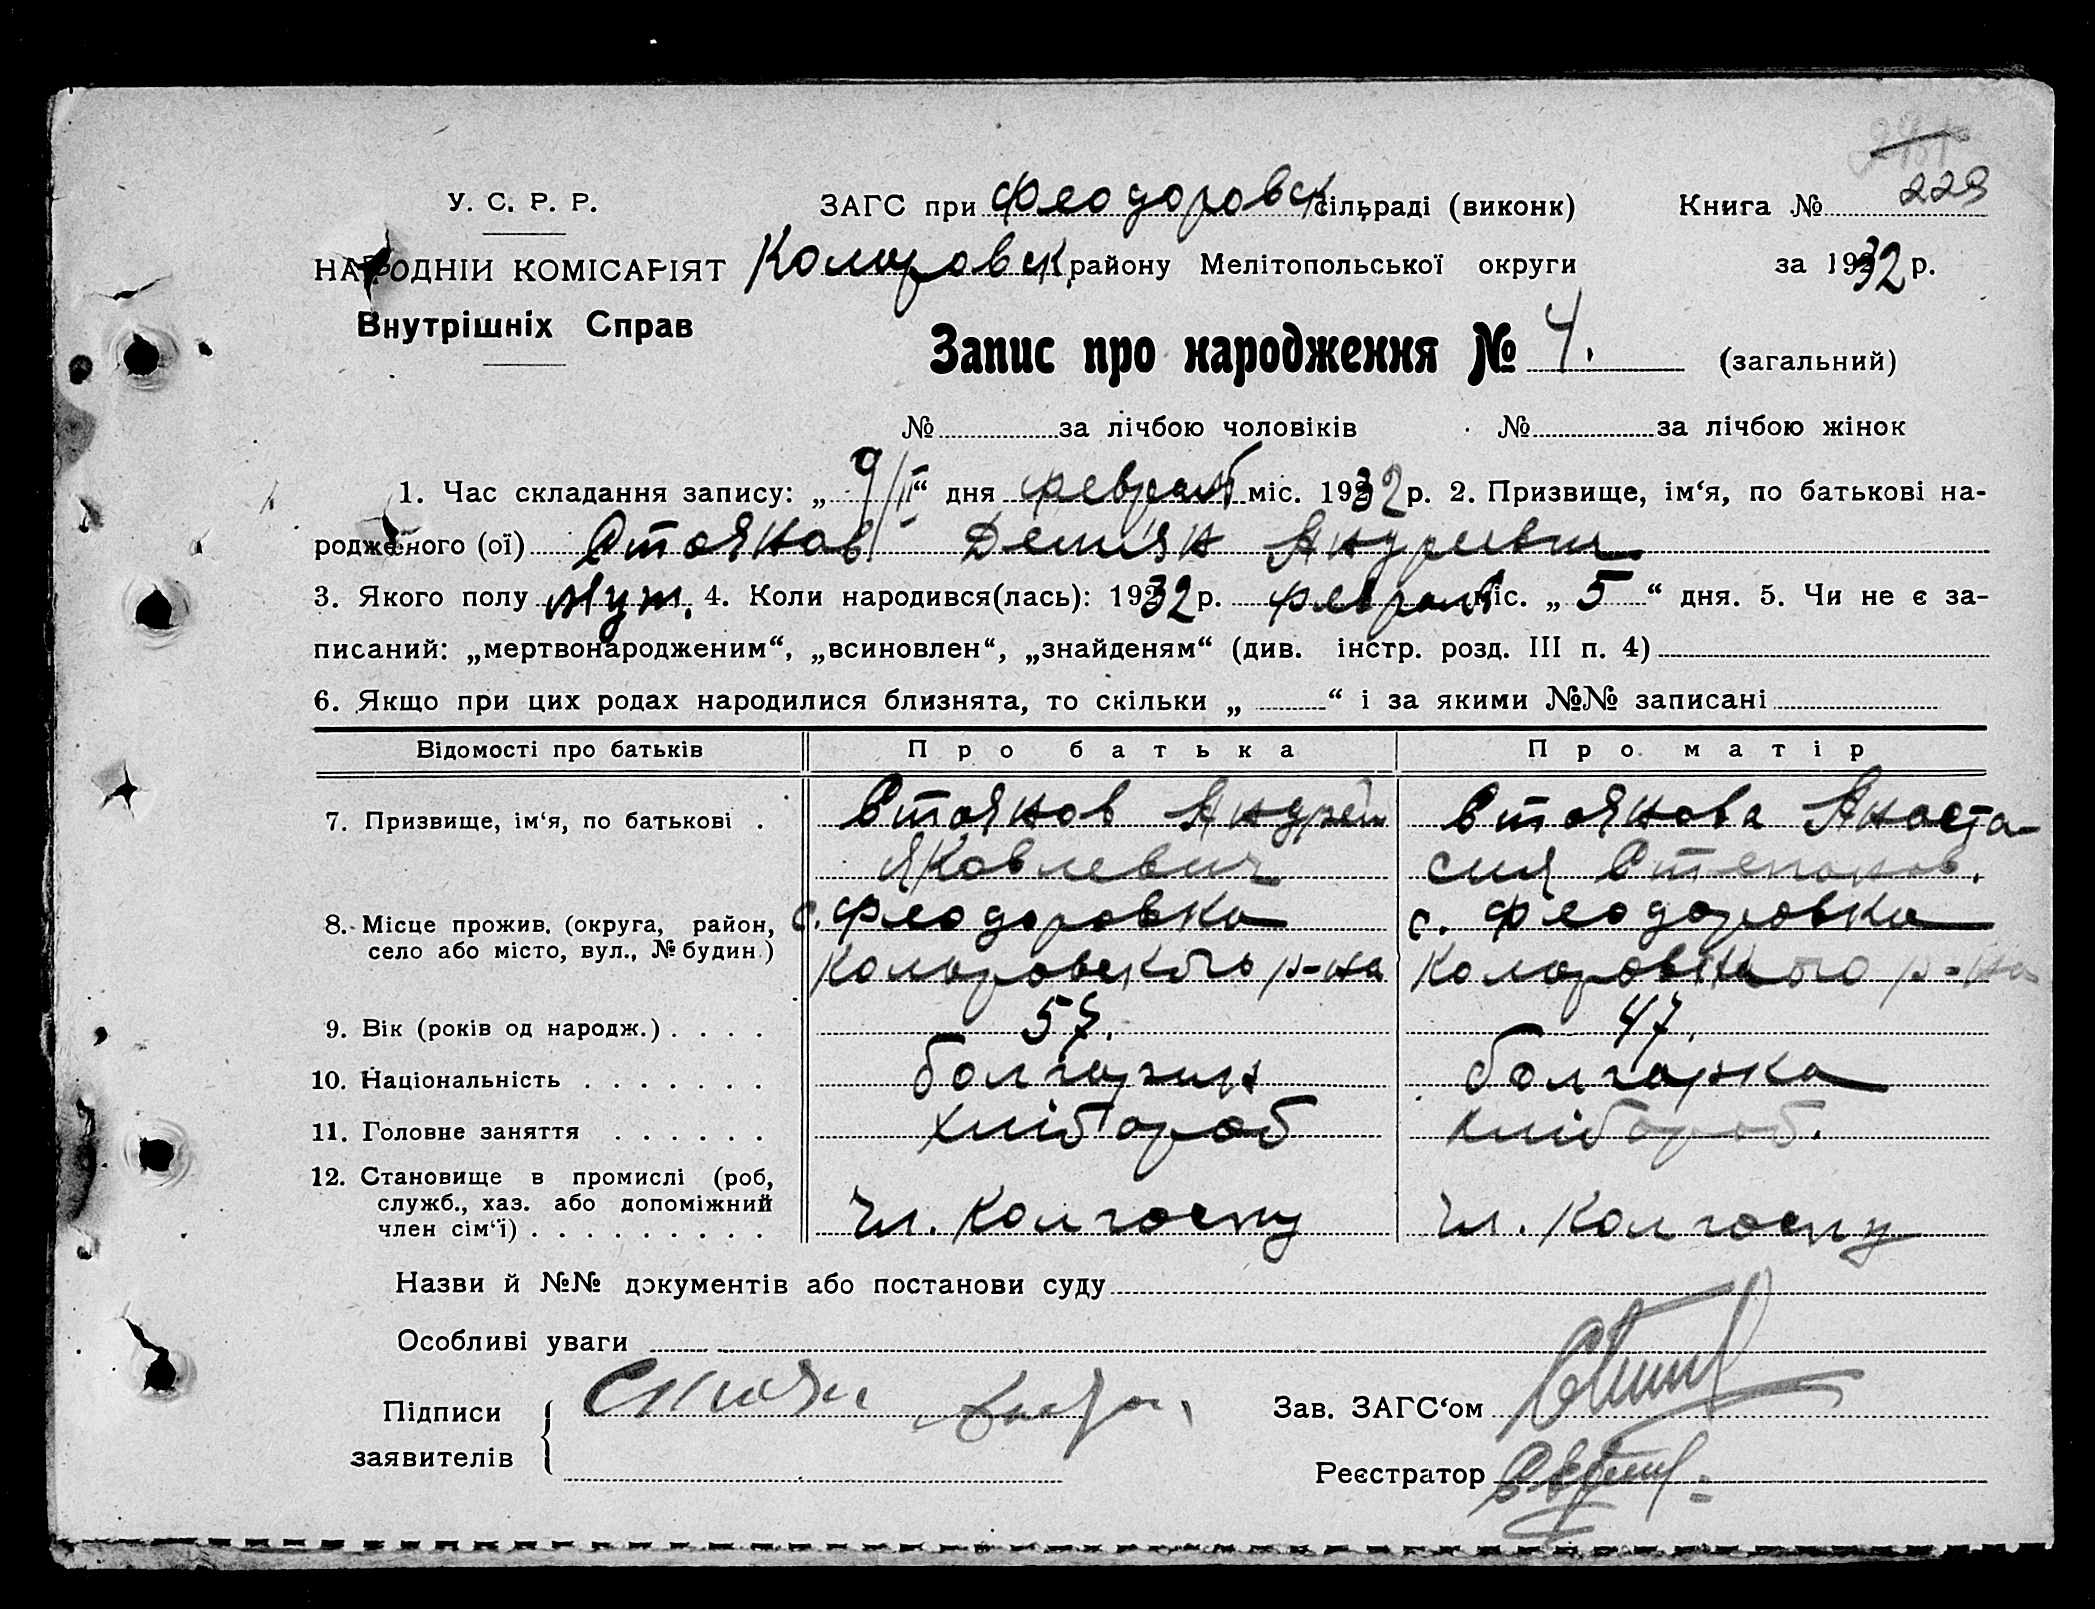 229
У. С. Р. Р. ЗАГС при Феодоровск. сільраді (виконк) Книга №
НАРОДНІЙ КОМІСАРІЯТ Коларовск. району Мелітопольської округи за 1932 р.
Внутрішніх Справ
Запис про народження № 4. (загальний)
№ за лічбою чоловіків № за лічбою жінок
1. Час складання запису: „ 9/II “ дня февраля міс. 1932 р. 2. Призвище, ім‘я, по батькові на-
родженого (ої) Стоянов Демян Андреевич
3. Якого полу муж. 4. Коли народився(лась): 1932 р. февраля міс. „ 5 “ дня. 5. Чи не є за-
писаний: „мертвонародженим“, „всиновлен“, „знайденям“ (див. інстр. розд. III п. 4)
6. Якщо при цих родах народилися близнята, то скільки „ “ і за якими №№ записані
Відомості про батьків Про батька Про матір
7. Призвище, ім‘я, по батькові . Стоянов Андрей Стоянова Анаста-
Яковлевич сия Степанов.
8. Місце прожив. (округа, район, с. Феодоровка с. Феодоровка
село або місто, вул., № будин.) Коларовского р-на Коларовского р-на
9. Вік (років од народж.) . . . . 57. 47.
10. Національність . . . . . . . болгарин болгарка
11. Головне заняття . . . . . . хлібороб хлібороб.
12. Становище в промислі (роб,
служб., хаз. або допоміжний
член сім‘ї) . . . . . . . . . чл. колгоспу чл. колгоспу
Назви й №№ документів або постанови суду
Особливі уваги
Підписи Зав. ЗАГС‘ом
заявителів Реєстратор